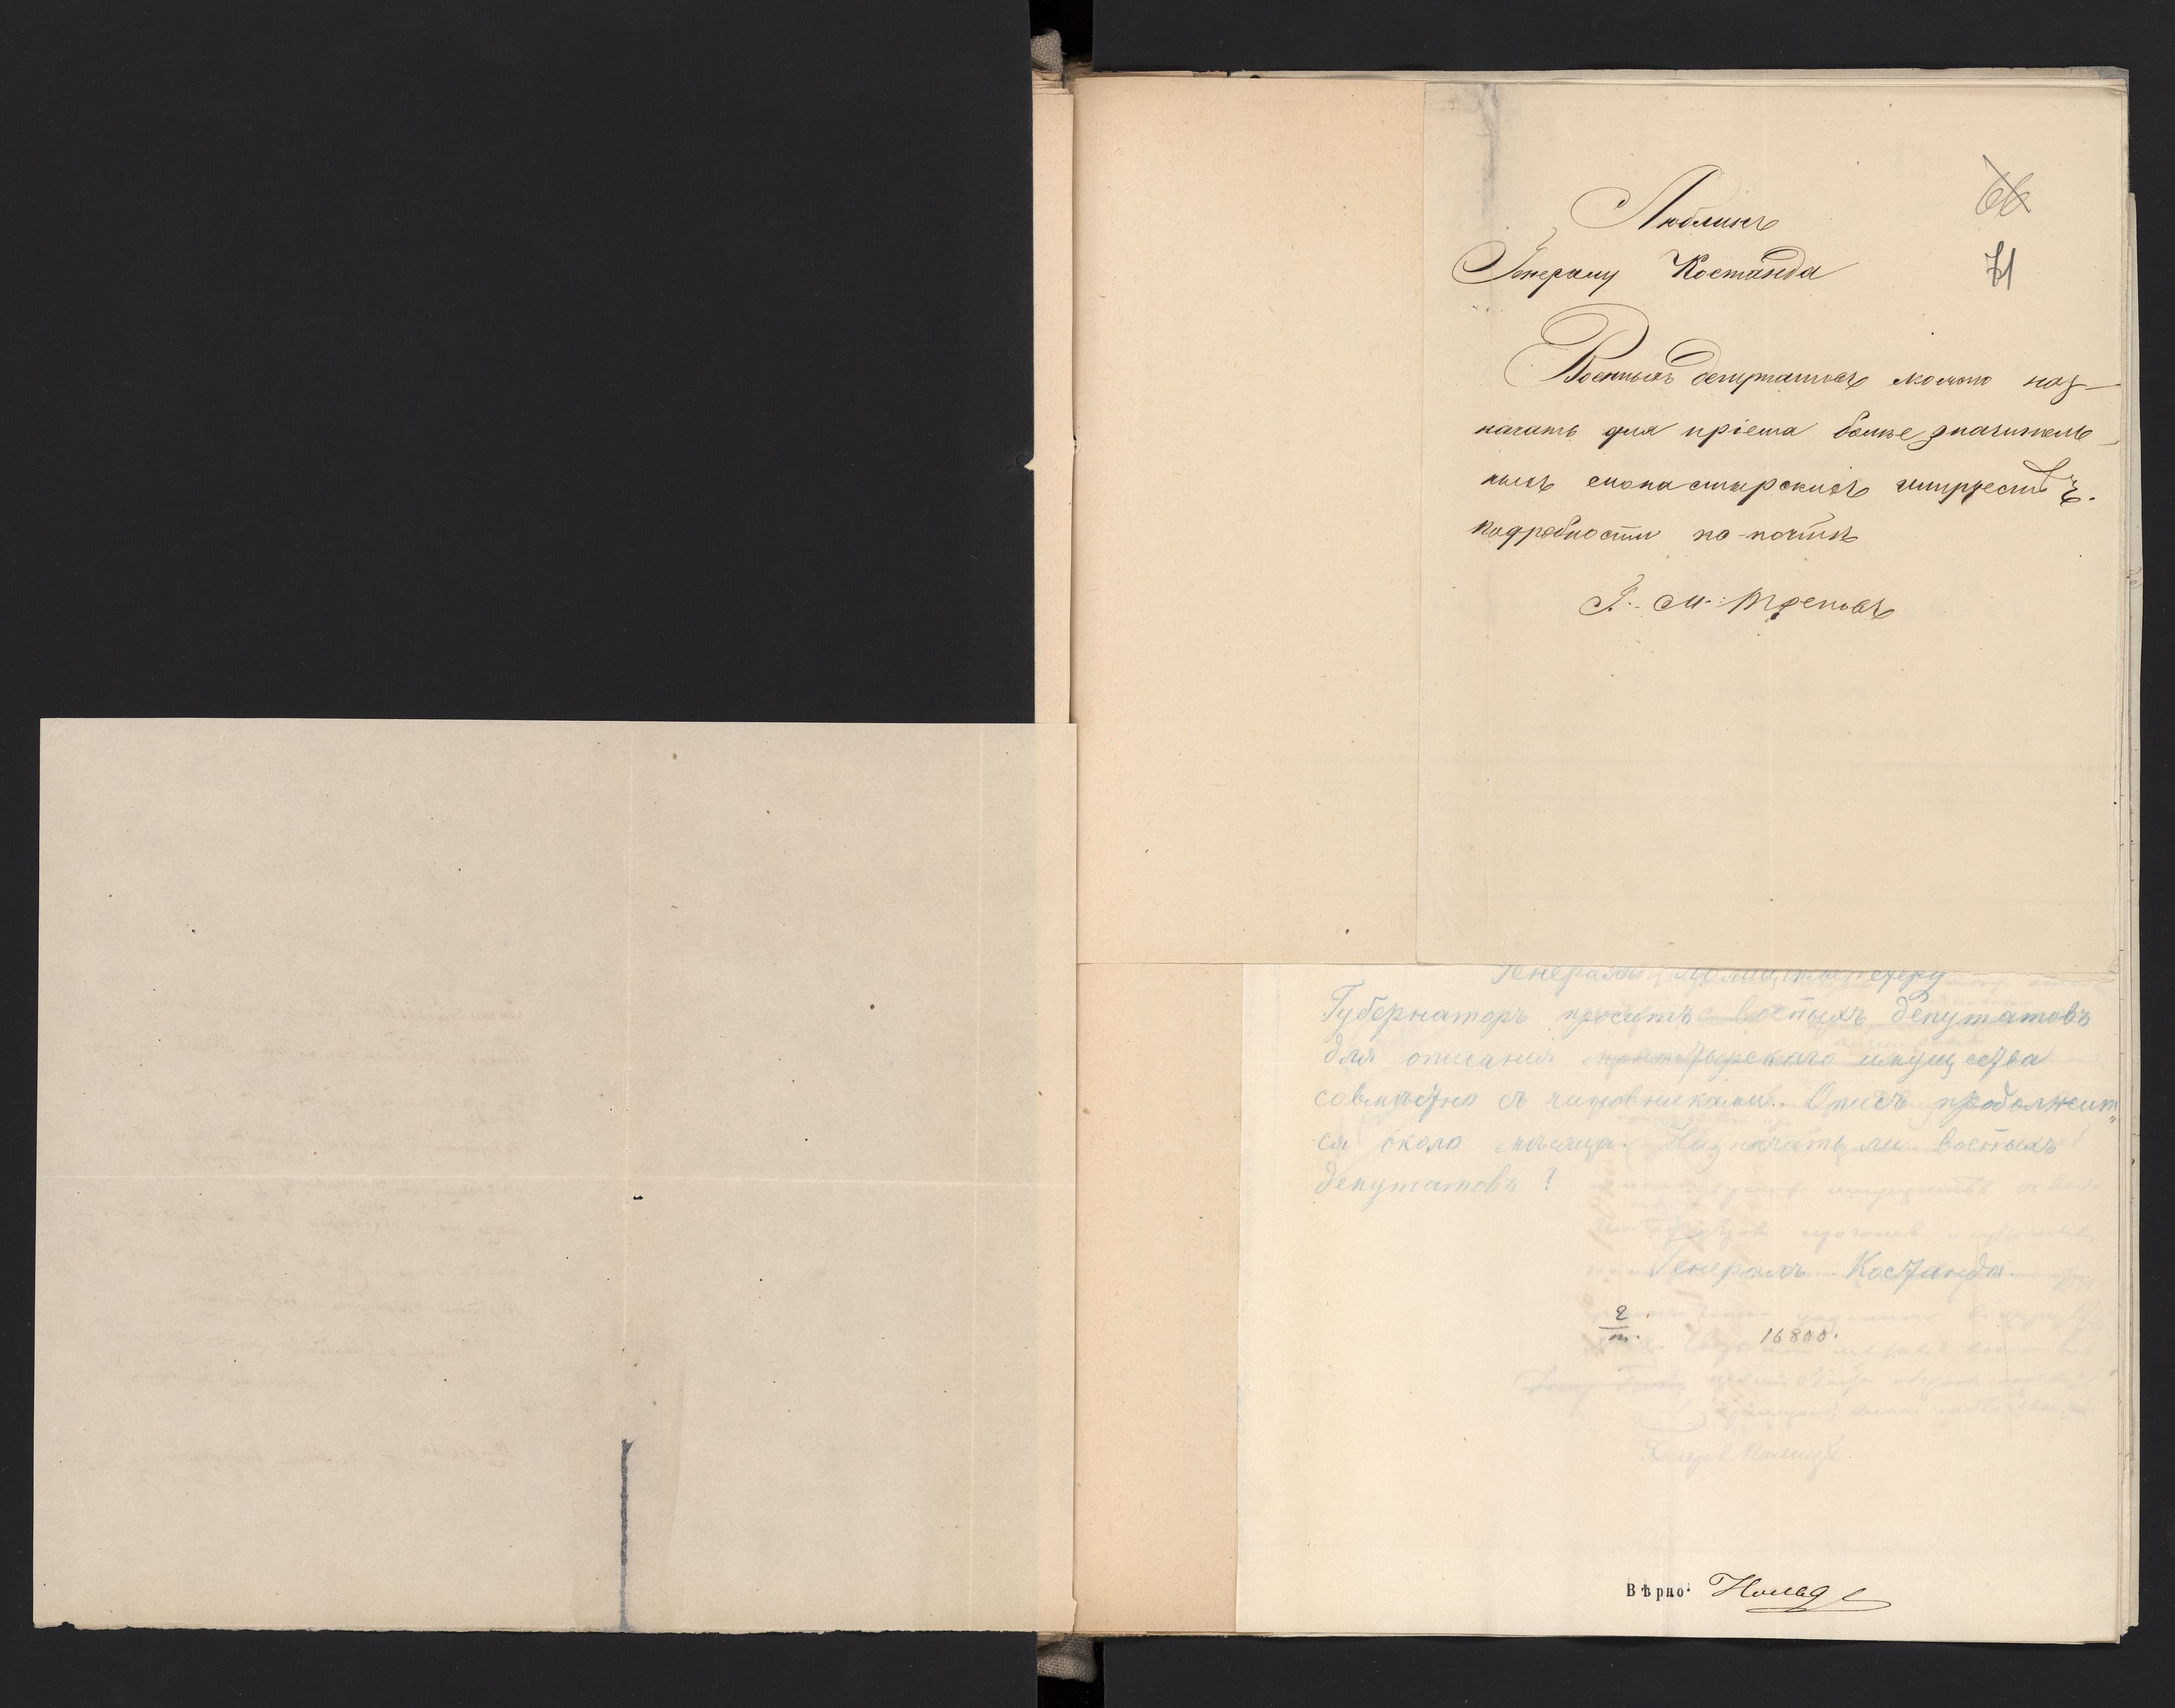 66
71
Люблинъ
Генералу Костанда
Военныхъ депутатовъ можно наз-
начать для пріема болѣе значитель-
ныхъ монастырскихъ имуществъ.
подробности по почтѣ
Г. М. Треповъ
Генералъ Полицiймейстеру
Губернаторъ проситъ военныхъ депутатовъ
для описанія монастырскаго имущества
совмѣстно съ чиновниками. Опись продолжит
ся около мѣсяца. Назначать ли военныхъ
депутатовъ?
Генералъ Костанда.
16800.
Вѣрно: